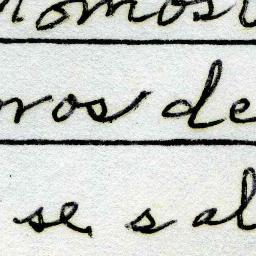 romos
ros de
se sal